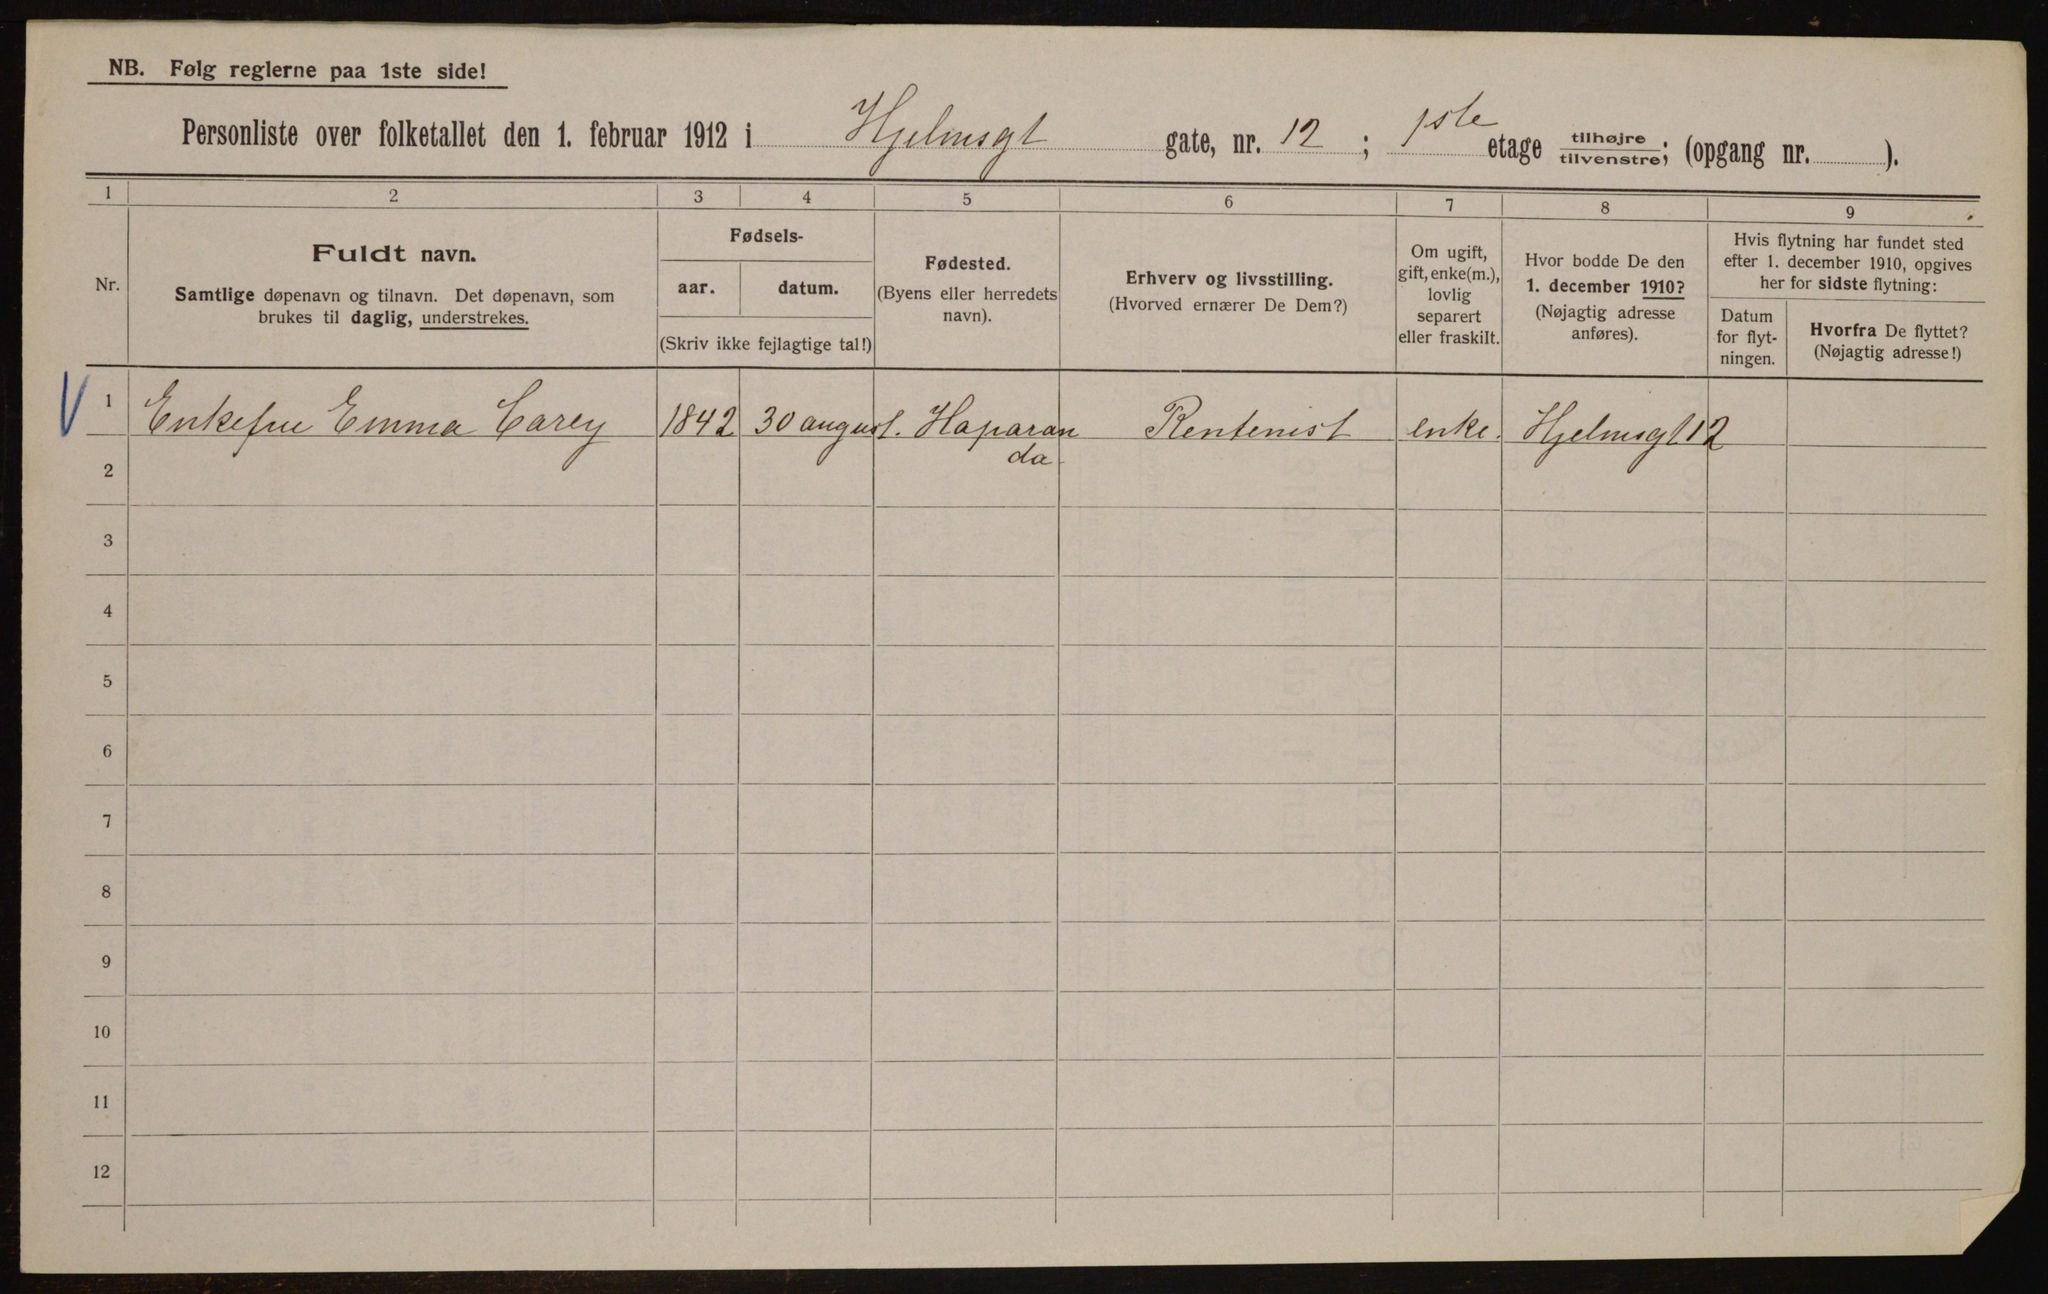 NB. Følg reglerne paa 1ste side!
Personliste over folketallet den 1. februar 1912 i Hjelmsgt gate, nr. 12 ; 1ste etage tilhøjre/tilvenstre; (opgang nr. ).
1 2 3 4 5 6 7 8 9
Nr.
Fuldt navn.
Samtlige døpenavn og tilnavn. Det døpenavn, som
brukes til daglig, understrekes.
Fødsels-
aar. datum.
(Skriv ikke fejlagtige tal!)
Fødested.
(Byens eller herredets
navn).
Erhverv og livsstilling.
(Hvorved ernærer De Dem?)
Om ugift,
gift, enke(m.),
lovlig
separert
eller fraskilt.
Hvor bodde De den
1. december 1910?
(Nøjagtig adresse
anføres).
Hvis flytning har fundet sted
efter 1. december 1910, opgives
her for sidste flytning:
Datum
for flyt-
ningen.
Hvorfra De flyttet?
(Nøjagtig adresse!)
1 Enkefru Emma Carey 1842 30 august. Haparan Rentenist enke. Hjelmsgt 12
da
2
3
4
5
6
7
8
9
10
11
12